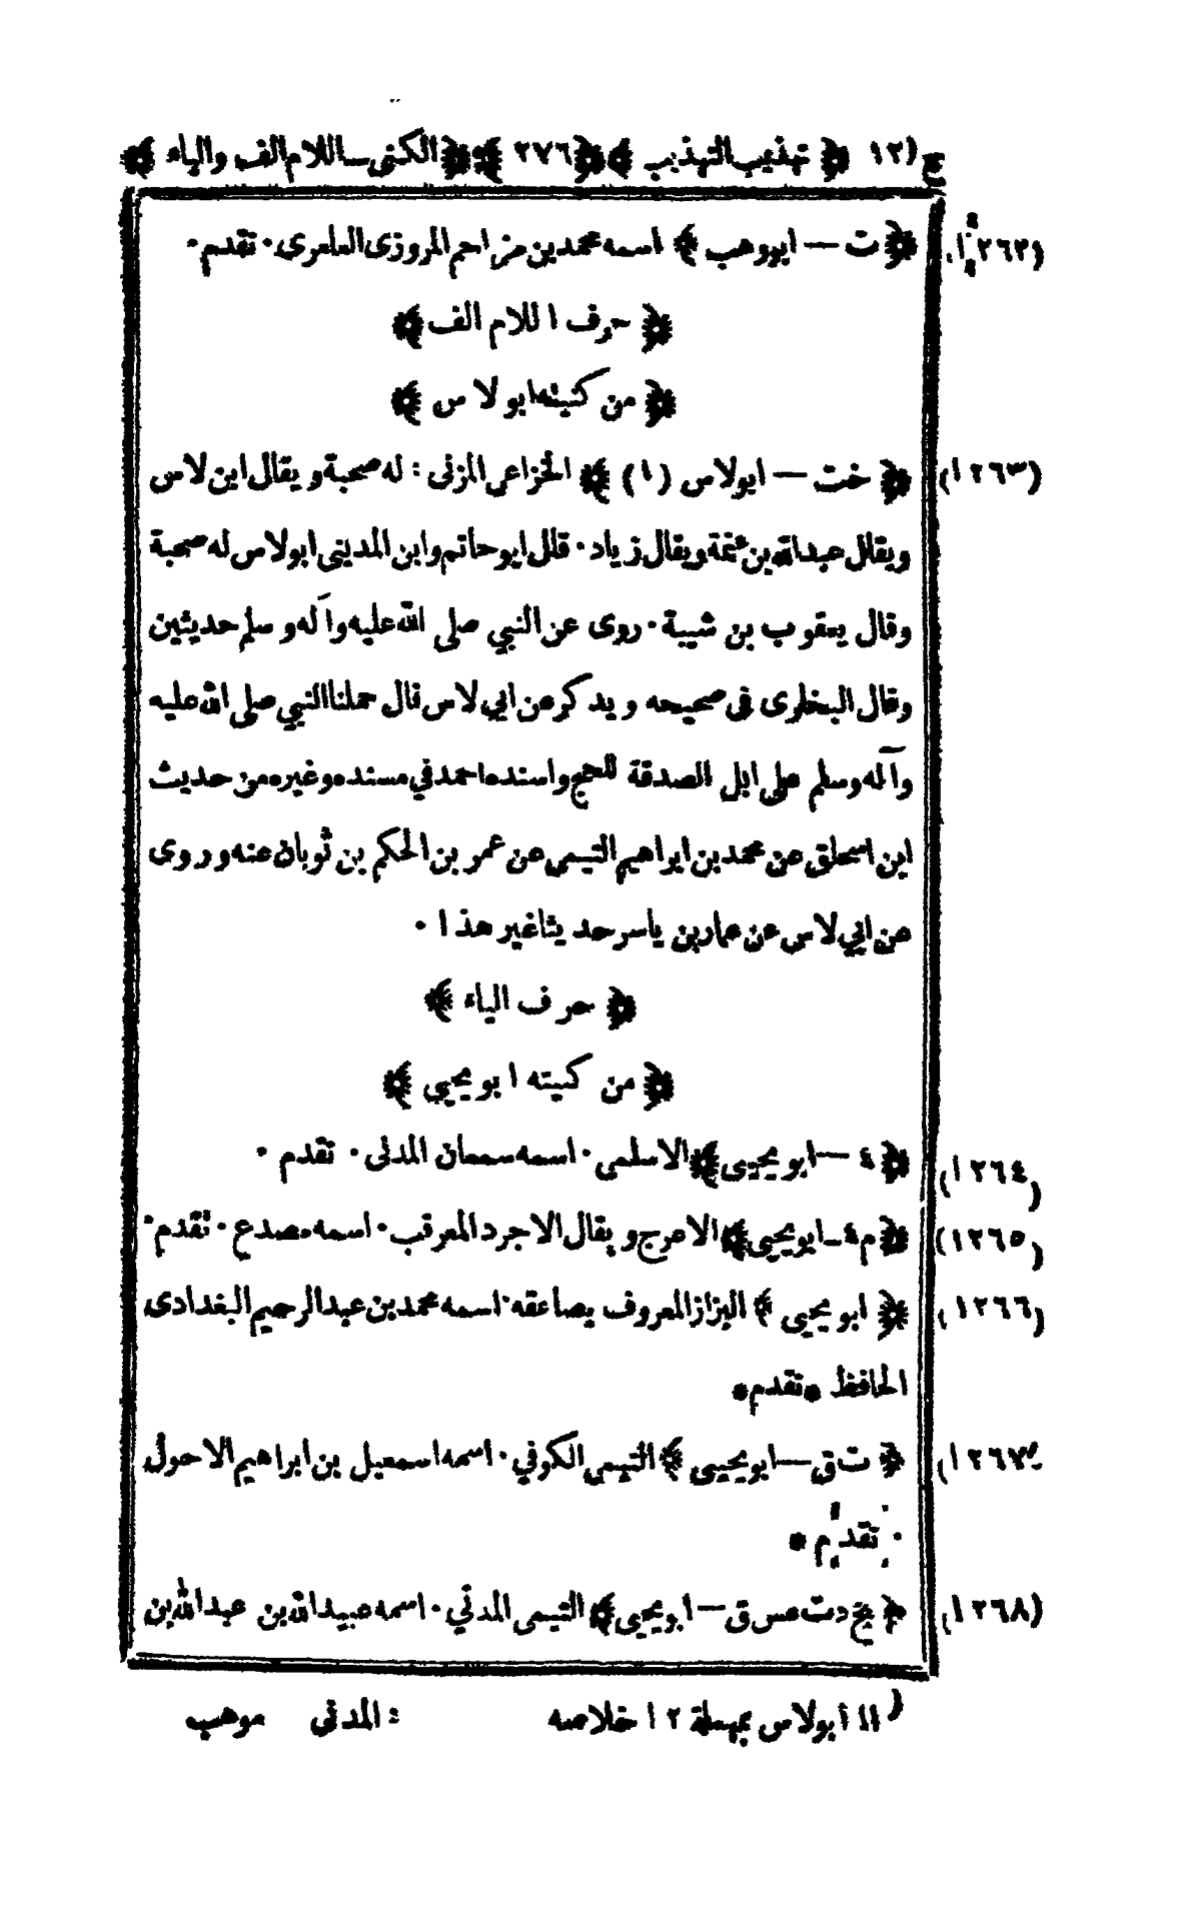 ﴿ الكنى ــ اللام الف والياء ﴾ ﴿ ٢٧٦ ﴾ ﴿ تهذيب التهذيب ﴾ (ج ١٢
(١٢٦٢) ﴿ ت — ابو وهب ﴾ اسمه محمد بن مزاحم المروزى العامرى · تقدم ·
﴿ حرف اللام الف ﴾
﴿ من كنيته ابو لاس ﴾
(١٢٦٣) ﴿ خت — ابولاس (١) ﴾ الخزاعى المزنى : له صحبة ويقال ابن لاس
ويقال عبدالله بن عنمة ويقال زياد · قال ابو حاتم وابن المدينى ابولاس له صحبة
وقال يعقوب بن شيبة · روى عن النبي صلى الله عليه وآله وسلم حديثين
وقال البخارى فى صحيحه ويذكر عن ابي لاس قال حملنا النبي صلى الله عليه
وآله وسلم على ابل الصدقة للحج واسنده احمد في مسنده وغيره من حديث
ابن اسحاق عن محمد بن ابراهيم التيمي عن عمر بن الحكم بن ثوبان عنه وروى
عن ابي لاس عن عمار بن ياسر حديثا غير هذا ·
﴿ حرف الياء ﴾
﴿ من كنيته ابو يحيي ﴾
(١٢٦٤) ﴿ ٤ — ابو يحيى ﴾ الاسلمى · اسمه سمعان المدنى · تقدم ·
(١٢٦٥) ﴿ م٤ــ ابو يحيى ﴾ الاعرج ويقال الاجرد المعرقب · اسمه مصدع · تقدم ·
(١٢٦٦) ﴿ ابو يحيى ﴾ البزاز المعروف بصاعقه · اسمه محمد بن عبد الرحيم البغدادى
الحافظ * تقدم *
(١٢٦٧) ﴿ ت ق — ابو يحيى ﴾ التيمي الكوفي · اسمه اسمعيل بن ابراهيم الاحول
· تقدم *
(١٢٦٨) ﴿ بخ د ت عس ق — ابو يحيى ﴾ التيمى المدني · اسمه عبيدالله بن عبدالله بن
(١) ابولاس بمهملة ١٢ خلاصه : المدنى موهب